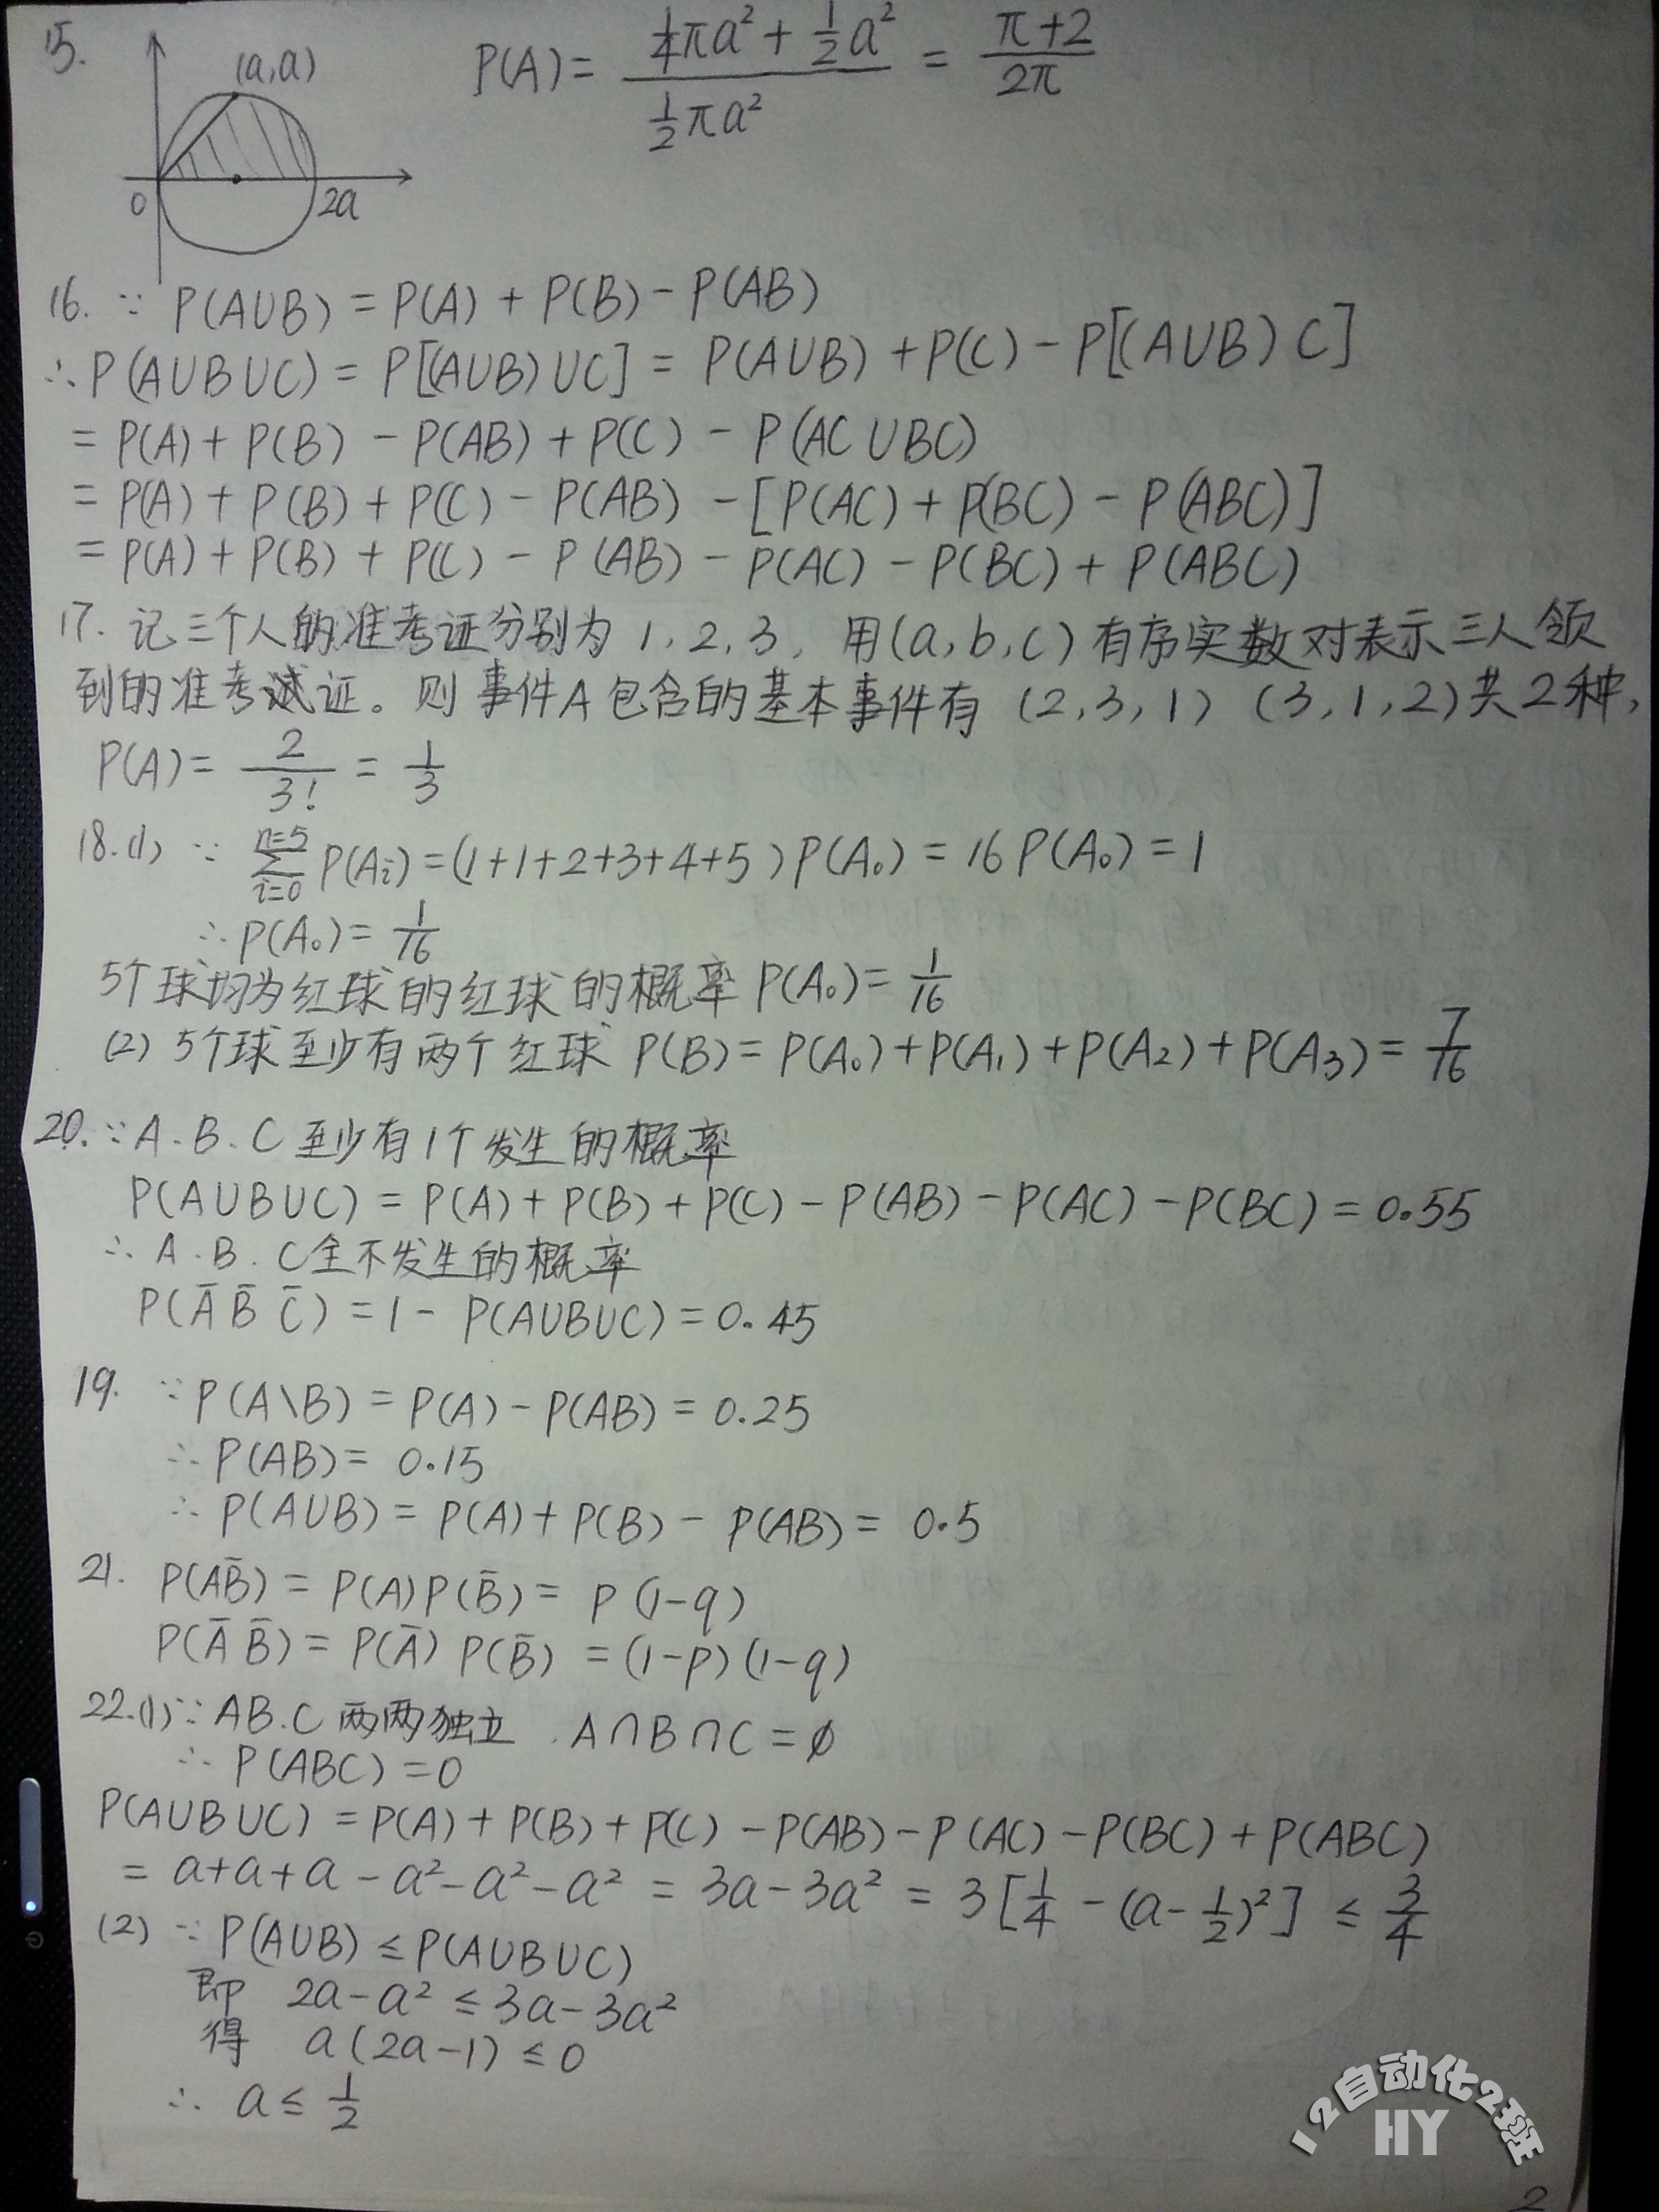 15.
(a,a)
0
2a
P(A) = (¼πa² + ½a²) / (½πa²) = (π+2) / 2π
16. ∵ P(A∪B) = P(A) + P(B) - P(AB)
∴ P(A∪B∪C) = P[(A∪B)∪C] = P(A∪B) + P(C) - P[(A∪B)C]
= P(A) + P(B) - P(AB) + P(C) - P(AC∪BC)
= P(A) + P(B) + P(C) - P(AB) - [P(AC) + P(BC) - P(ABC)]
= P(A) + P(B) + P(C) - P(AB) - P(AC) - P(BC) + P(ABC)
17. 记三个人的准考证分别为 1, 2, 3, 用(a, b, c)有序实数对表示三人领
到的准考试证。则事件A包含的基本事件有 (2,3,1) (3,1,2)共2种,
P(A) = 2/3! = 1/3
18.(1) ∵ ∑(i=0, n=5) P(Ai) = (1+1+2+3+4+5)P(A₀) = 16P(A₀) = 1
∴ P(A₀) = 1/16
5个球均为红球的红球的概率 P(A₀) = 1/16
(2) 5个球至少有两个红球 P(B) = P(A₀) + P(A₁) + P(A₂) + P(A₃) = 7/16
20. ∵ A.B.C至少有1个发生的概率
P(A∪B∪C) = P(A) + P(B) + P(C) - P(AB) - P(AC) - P(BC) = 0.55
∴ A.B.C全不发生的概率
P(A̅ B̅ C̅) = 1 - P(A∪B∪C) = 0.45
19. ∵ P(A\B) = P(A) - P(AB) = 0.25
∴ P(AB) = 0.15
∴ P(A∪B) = P(A) + P(B) - P(AB) = 0.5
21. P(AB̅) = P(A)P(B̅) = p(1-q)
P(A̅ B̅) = P(A̅) P(B̅) = (1-p)(1-q)
22.(1) ∵ AB.C两两独立. A∩B∩C = ∅
∴ P(ABC) = 0
P(A∪B∪C) = P(A) + P(B) + P(C) - P(AB) - P(AC) - P(BC) + P(ABC)
= a+a+a - a² - a² - a² = 3a - 3a² = 3[¼ - (a - ½)²] ≤ ¾
(2) ∵ P(A∪B) ≤ P(A∪B∪C)
即 2a - a² ≤ 3a - 3a²
得 a(2a-1) ≤ 0
∴ a ≤ ½
12自动化2班
HY
2